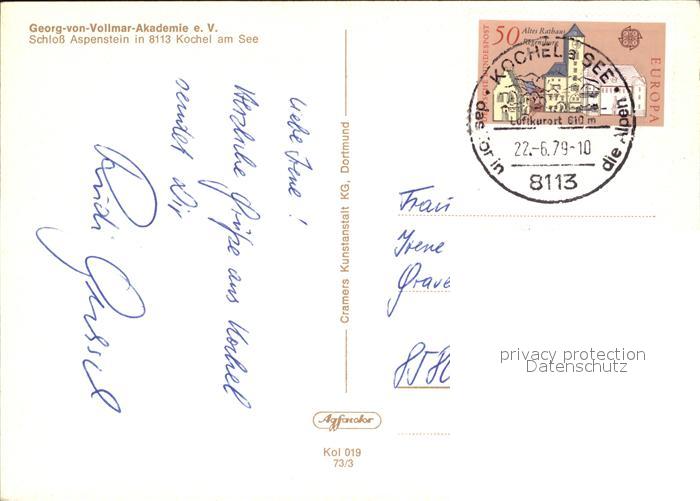 Georg-von-Vollmar-Akademie e. V.
Schloß Aspenstein in 8113 Kochel am See
Liebe Irene!
Herzliche Grüße aus Kochel
sendet Dir
Rudi
Cramers Kunstanstalt KG, Dortmund
50 Altes Rathaus
Regensburg
DEUTSCHE BUNDESPOST
EUROPA
KOCHEL a. SEE
Luftkurort 610 m
22.-6.79-10
8113
das Tor in die Alpen
Frau
Irene
privacy protection
Datenschutz
Agfacolor
Kol 019
73/3